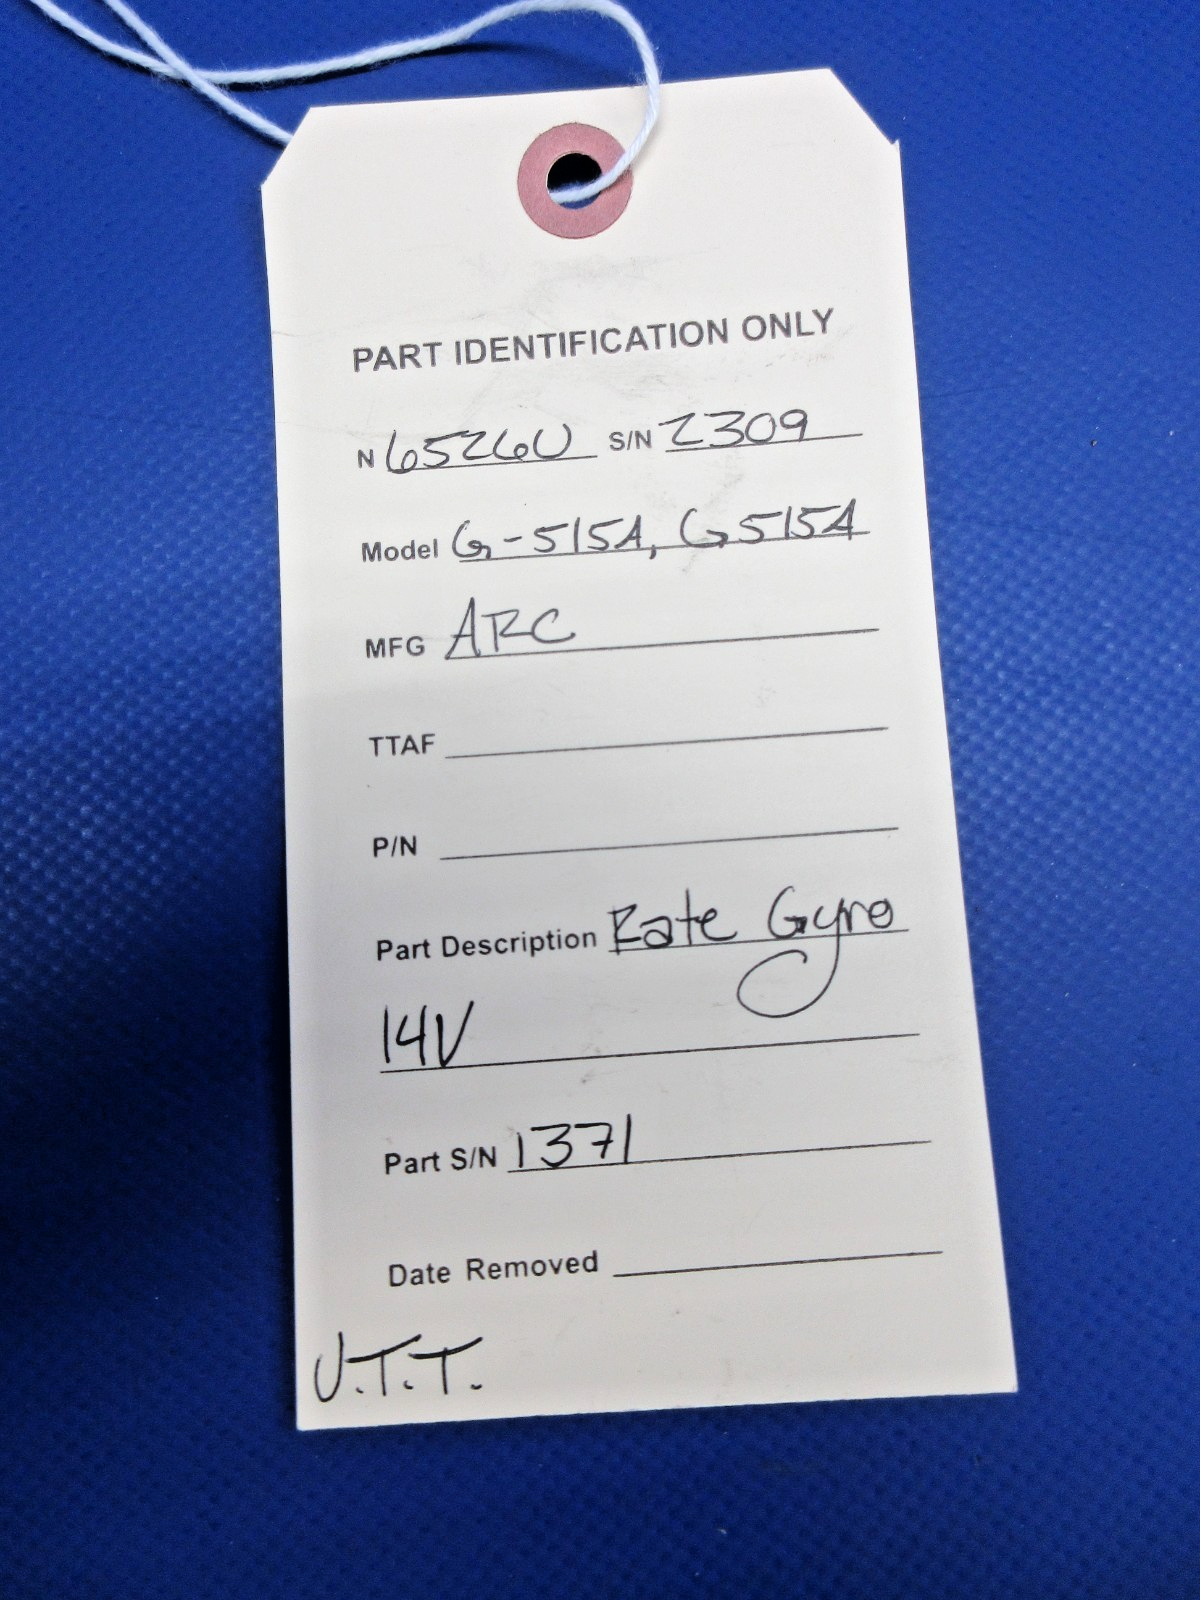 PART IDENTIFICATION ONLY
N 65260 S/N 2309
Model G-515A, G515A
MFG ARC
TTAF
P/N
Part Description Rate Gyro
14V
Part S/N 1371
Date Removed
U.T.T.